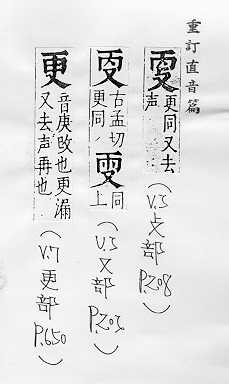 重訂直音篇
更同又去
声
(V.5攴部 P.208)
古孟切
更同
同
上
(V.5又部 P.203)
更
音庚改也更漏
又去声再也
(V.7更部 P.650)